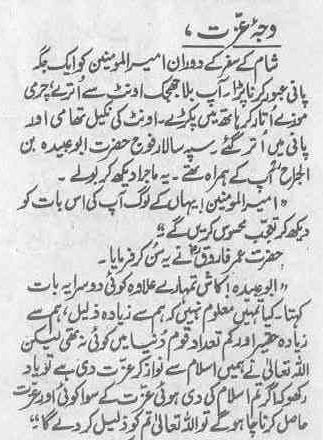 وجۂ عزّت ،
شام کے سفر کے دوران امیر المومنین کو ایک جگہ
پانی عبور کرنا پڑا۔ آپ بلا جھجک اونٹ سے اُترے چرمی
موزے اُتار کر ہاتھ میں پکڑے۔ اونٹ کی نکیل تھامی اور
پانی میں اُتر گئے سپہ سالار فوج حضرت ابوعبیدہ بن
الجراحؓ آپ کے ہمراہ تھے۔ یہ ماجرا دیکھ کر بولے۔
“امیر المومنین! یہاں کے لوگ آپ کی اس بات کو
دیکھ کر تعجب محسوس کریں گے”
حضرت عمر فاروقؓ نے یہ سُن کر فرمایا۔
“ابوعبیدہ! کاش تمہارے علاوہ کوئی دوسرا یہ بات
کہتا۔ کیا تمہیں معلوم نہیں کہ ہم سے زیادہ ذلیل، ہم سے
زیادہ حقیر اور کم تعداد قوم دُنیا میں کوئی نہ تھی لیکن
اللہ تعالٰی نے ہمیں اسلام سے نواز کر عزت دی ہے تو یاد
رکھو کہ اگر تم اسلام کی دی ہوئی عزت کے سوا کوئی اور عزت
حاصل کرنا چاہو گے تو اللہ تعالٰی تم کو ذلیل کر دے گا”